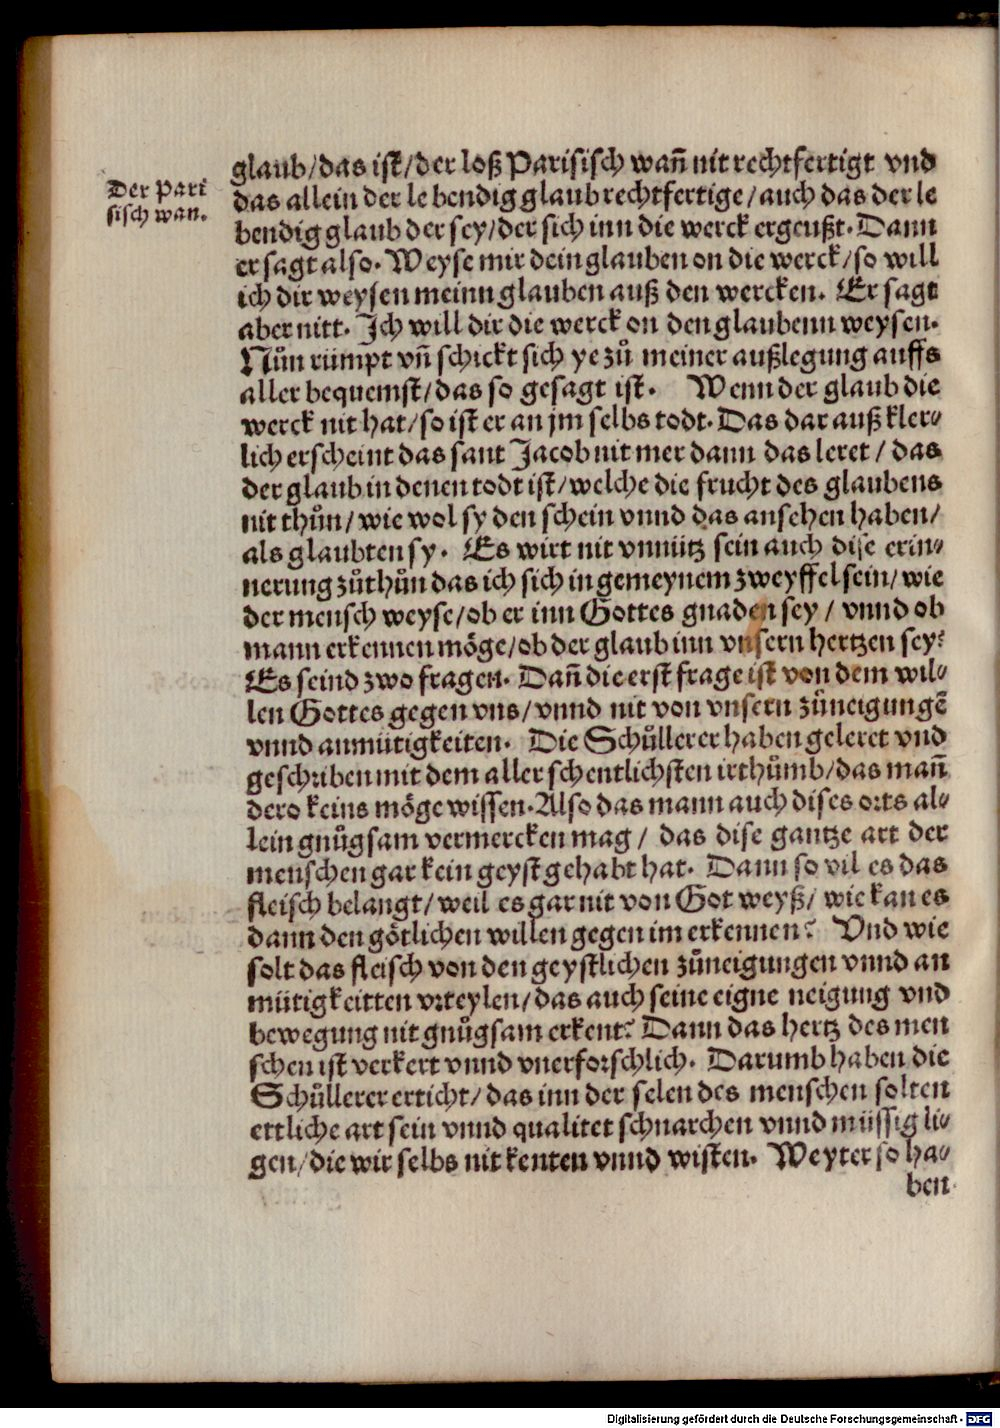 Der Pari
sisch wan.
glaub/das ist/der loß Parisisch wañ nit rechtfertigt vnd
das allein der le bendig glaub rechtfertige/auch das der le
bendig glaub der sey/der sich inn die werck ergeußt. Dann
er sagt also. Weyse mir dein glauben on die werck/so will
ich dir weysen meinn glauben auß den wercken. Er sagt
aber nitt. Ich will dir die werck on den glaubenn weysen.
Nůn rümpt vñ schickt sich ye zů meiner außlegung auffs
aller bequemst/das so gesagt ist. Wenn der glaub die
werck nit hat/so ist er an jm selbs todt. Das dar auß kler⸗
lich erscheint das sant Jacob nit mer dann das leret / das
der glaub in denen todt ist/welche die frucht des glaubens
nit thůn/wie wol sy den schein vnnd das ansehen haben/
als glaubten sy. Es wirt nit vnnütz sein auch dise erin⸗
nerung zůthůn das ich sich in gemeynem zweyffel sein/wie
der mensch weyse/ob er inn Gottes gnaden sey / vnnd ob
mann erkennen möge/ob der glaub inn vnsern hertzen sey?
Es seind zwo fragen. Dañ die erst frage ist von dem wil⸗
len Gottes gegen vns/vnnd nit von vnsern zůneigungē
vnnd anmütigkeiten. Die Schůllerer haben geleret vnd
geschriben mit dem aller schentlichsten irthůmb/das mañ
dero keins möge wissen. Also das mann auch dises orts al⸗
lein gnůgsam vermercken mag / das dise gantze art der
menschen gar kein geyst gehabt hat. Dann so vil es das
fleisch belangt/weil es gar nit von Got weyß/ wie kan es
dann den götlichen willen gegen im erkennen? Vnd wie
solt das fleisch von den geystlichen zůneigungen vnnd an
mütigkeitten vrteylen/das auch seine eigne neigung vnd
bewegung nit gnůgsam erkent? Dann das hertz des men
schen ist verkert vnnd vnerforschlich. Darumb haben die
Schůllerer erticht/das inn der selen des menschen solten
ettliche art sein vnnd qualitet schnarchen vnnd müssig li⸗
gen/die wir selbs nit kenten vnnd wisten. Weyter so ha⸗
ben
Digitalisierung gefördert durch die Deutsche Forschungsgemeinschaft - DFG